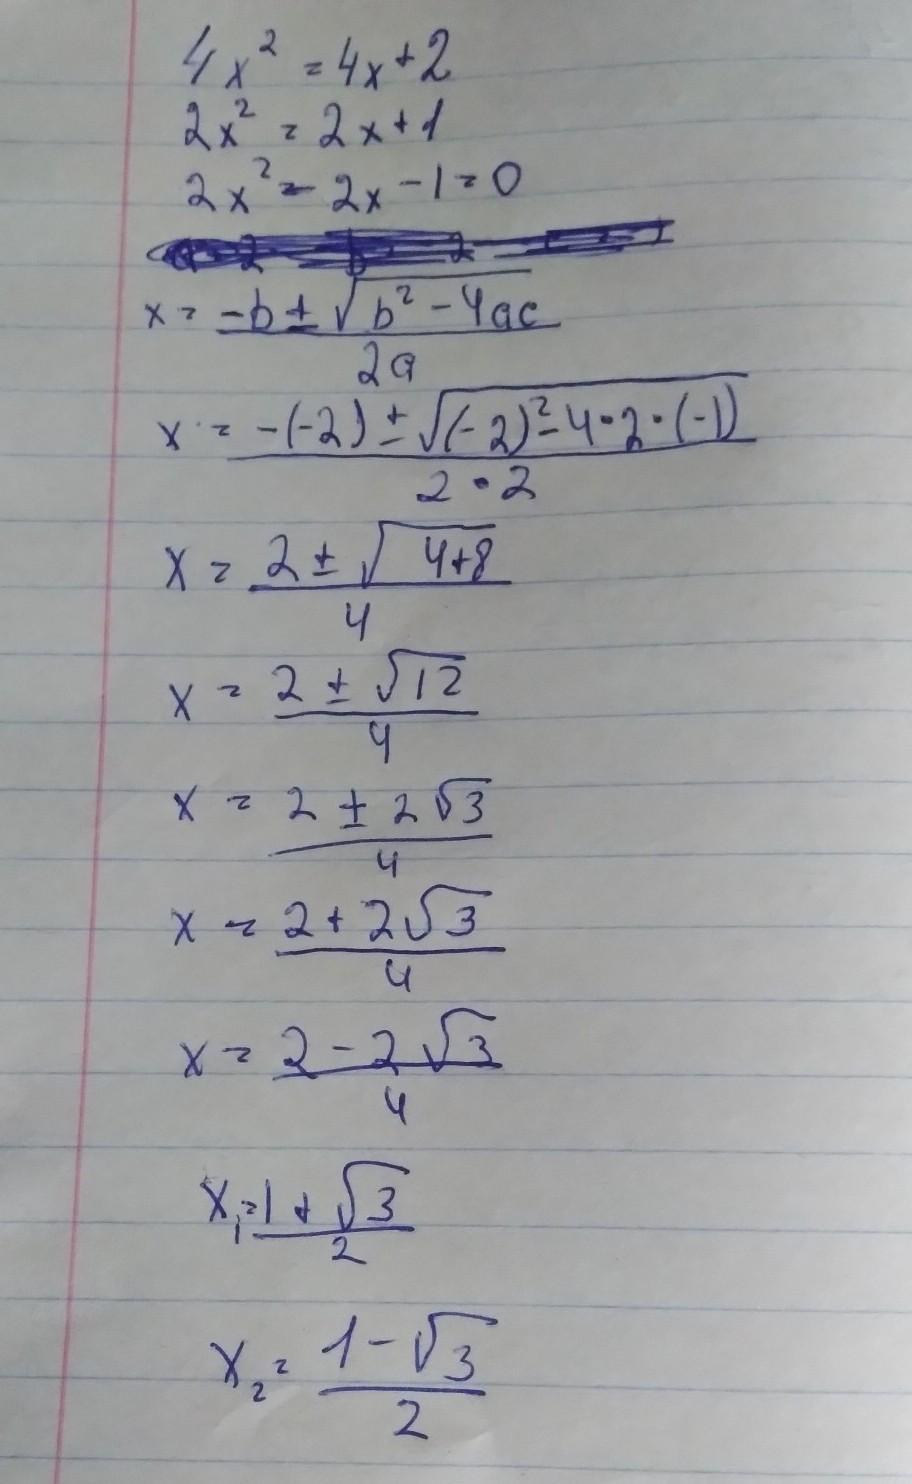 4x² = 4x+2
2x² = 2x+1
2x² - 2x -1 = 0
x = (-b ± √(b² - 4ac))/(2a)
x = (-(-2) ± √((-2)² - 4•2•(-1)))/(2•2)
x = (2 ± √(4+8))/4
x = (2 ± √12)/4
x = (2 ± 2√3)/4
x = (2 + 2√3)/4
x = (2 - 2√3)/4
x₁ = (1 + √3)/2
x₂ = (1 - √3)/2